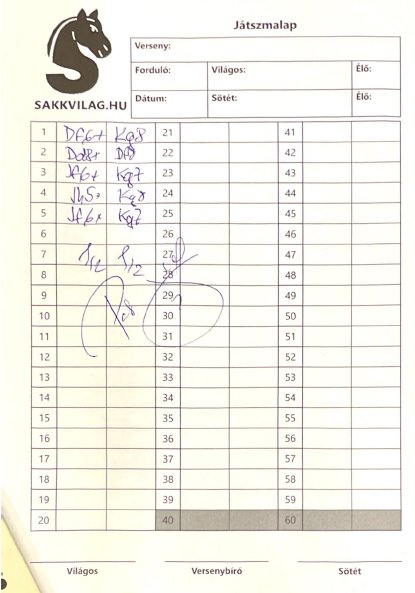 Játszmalap
Verseny:
Forduló: Világos: Élő:
Dátum: Sötét: Élő:
SAKKVILAG.HU
1 Df6+ Kg8 21 41
2 Dd8+ Df8 22 42
3 Jf6+ Kg7 23 43
4 Jh5+ Kg8 24 44
5 Jf6+ Kg7 25 45
6 26 46
7 1/2 1/2 27 47
8 28 48
9 29 49
10 30 50
11 31 51
12 32 52
13 33 53
14 34 54
15 35 55
16 36 56
17 37 57
18 38 58
19 39 59
20 40 60
Világos Versenybíró Sötét